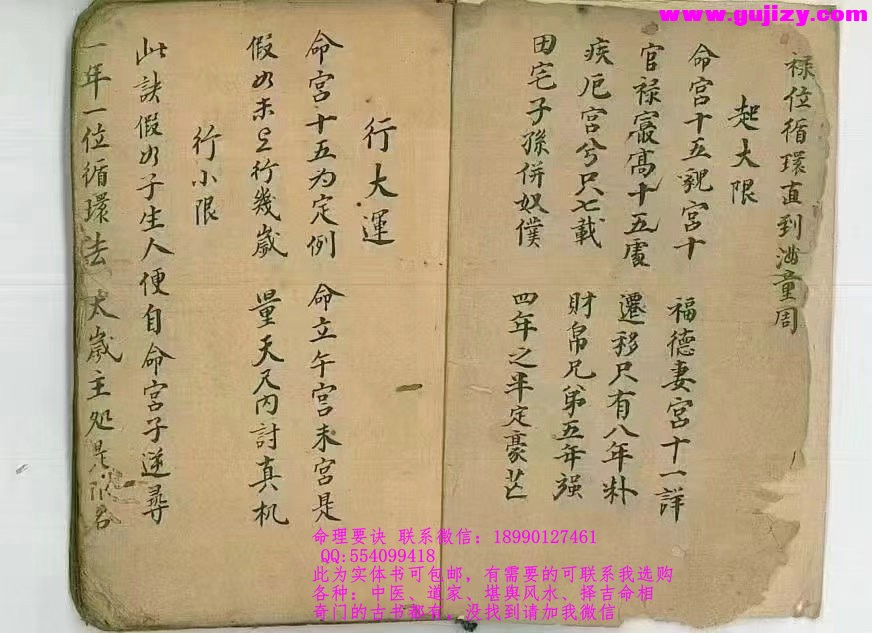 www.gujizy.com
禄位循環直到滿童周
起大限
命宮十五親宮十 福德妻宮十一詳
官禄最高十五處 遷移尺有八年料
疾厄宮兮只七載 財帛兄弟五年强
田宅子孫併奴僕 四年之半定豪芒
行大運
命宮十五为定例 命立午宮未宮是
假如未上行幾歲 量天尺内討真机
行小限
此訣假如子生人便自命宮子逆尋
一年一位循環去 太歲主処是
命理要诀 联系微信：18990127461
QQ:554099418
此为实体书可包邮，有需要的可联系我选购
各种：中医、道家、堪舆风水、择吉命相
奇门的古书都有，没找到请加我微信